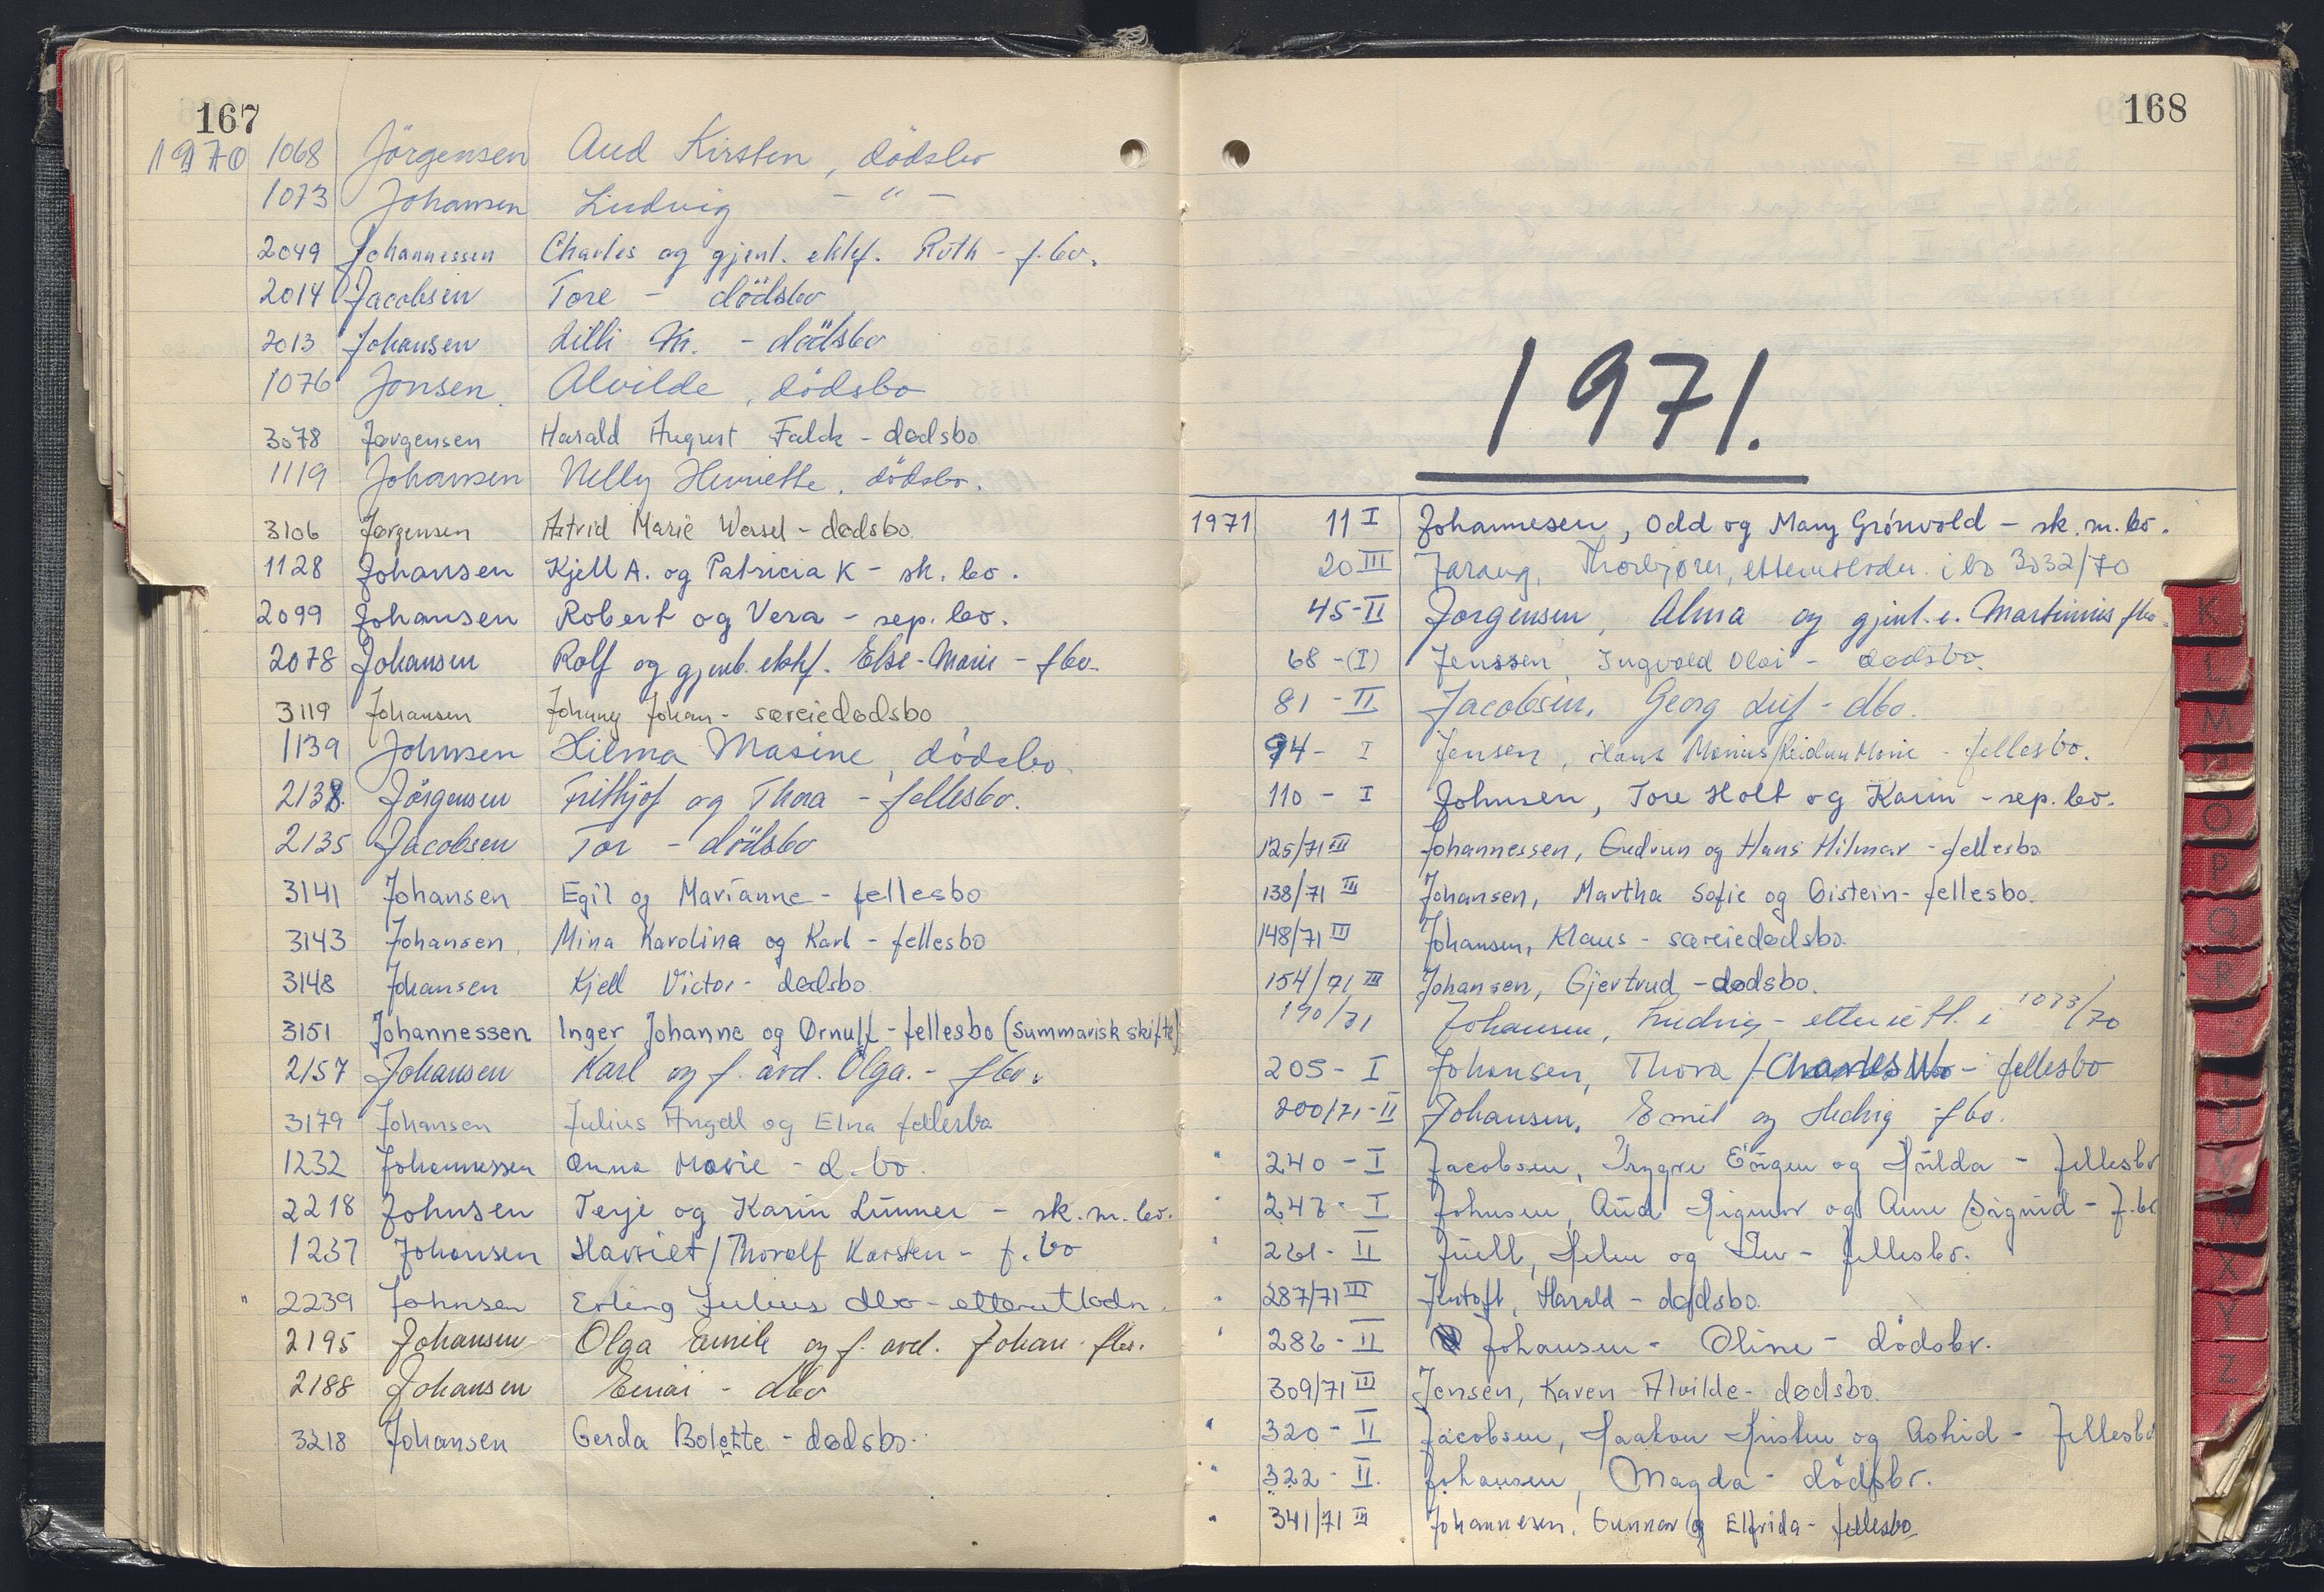 167
1970 1068 Jörgensen Aud Kirsten, dödsbo
1073 Johansen Ludvig - " -
2049 Johannessen Charles og gjenl. ektef. Ruth - f.bo.
2014 Jacobsen Tore - dödsbo
2013 Johansen Lilli M. - dödsbo
1076 Jonsen Alvilde, dödsbo
3078 Jørgensen Harald August Falck - dødsbo
1119 Johansen Nelly Henriette, dödsbo.
3106 Jørgensen Astrid Marie Wessel - dødsbo.
1128 Johansen Kjell A. og Patricia K - sk. bo.
2099 Johansen Robert og Vera - sep. bo.
2078 Johansen Rolf og gjenl. ektef. Else-Marie - fbo.
3119 Johansen Johnny Johan - særeiedødsbo
1139 Johnsen Hilma Masine, dödsbo
2138. Jörgensen Frithjof og Thora - fellesbo.
2135 Jacobsen Tor - dödsbo
3141 Johansen Egil og Marianne - fellesbo
3143 Johansen Mina Karolina og Karl - fellesbo
3148 Johansen Kjell Victor - dødsbo
3151 Johannessen Inger Johanne og Ørnulf - fellesbo (Summarisk skifte)
2157 Johansen Karl og f. avd. Olga. - fbo.
3179 Johansen Julius Angell og Elna fellesbo
1232 Johannessen Anna Marie - d. bo.
2218 Johnsen Terje og Karin Lunner - sk. m. bo.
1237 Johansen Harriet / Thoralf Karsten - f. bo
" 2239 Johnsen Erling Julius dbo - etterutlodn.
2195 Johansen Olga Emilie og f. avd. Johan fbo.
2188 Johansen Einar - dbo
3218 Johansen Gerda Bolette - dødsbo.
168
1971.
1971 11 I Johannesen, Odd og Mary Grönvold - sk. m. bo.
20 III Jarang, Thorbjørn, etterutlodn. i bo 3032/70
45-II Jørgensen, Alma og gjenl. e. Martinius fbo.
68-(I) Jenssen Ingvald Olai - dødsbo.
81-II Jacobsen, Georg Leif - dbo.
94- I Jensen, Hans Marius/Reidun Marie - fellesbo.
110 - I Johnsen, Tore Holt og Karin - sep. bo.
125/71 III Johannessen, Gudrun og Hans Hilmar - fellesbo
138/71 III Johansen, Martha Sofie og Øistein - fellesbo.
148/71 III Johansen, Klaus - særeiedødsbo.
154/71 III Johansen, Gjertrud - dødsbo.
190/71 Johansen, Ludvig - etterutl. i 1073/70
205- I Johansen, Thora / Charles - fellesbo
200/71-II Johansen, Emil og Hedvig - fbo.
" 240 - I Jacobsen, Trygve Eörgen og Hulda - fellesbo
" 247- I Johnsen, Aud Sigmor og Arne Sigurd - f.bo
" 261- II Juell, og - fellesbo.
" 287/71 III Jentoft, Harald - dødsbo.
" 286-II Johansen - Oline - dödsbo.
309/71 III Jonsen, Karen Alvilde - dødsbo.
" 320- II Jacobsen, Haakon Kristen og Astrid - Fellesbo
" 322- II. Johansen, Magda - dödsbo.
" 341/71 III Johannesen, Gunnar og Elfrida - fellesbo
K
L
M
N
O
P
Q
R
S
T
U
V
W
X
Y
Z